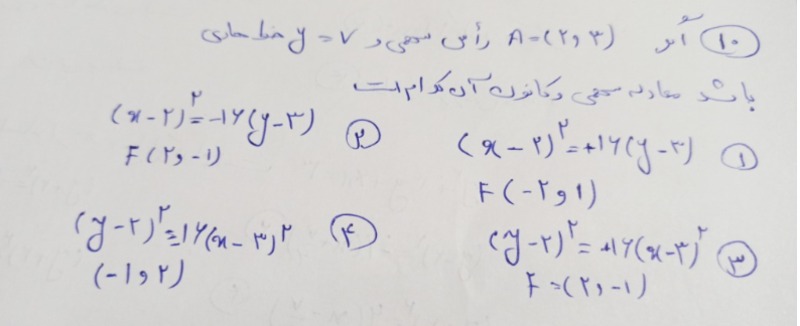 ۱۰) اگر A=(۲ و ۳) رأس سهمی و y=۷ خط هادی
باشد معادله سهمی و کانون آن کدام است
۱) (x-۲)^۲=+۱۶(y-۳)
F(-۲ و ۱)
۲) (x-۲)^۲=-۱۶(y-۳)
F(۲ و -۱)
۳) (y-۲)^۲=+۱۶(x-۳)^۲
F=(۲ و -۱)
۴) (y-۲)^۲=۱۶(x-۳)^۲
(-۱ و ۲)